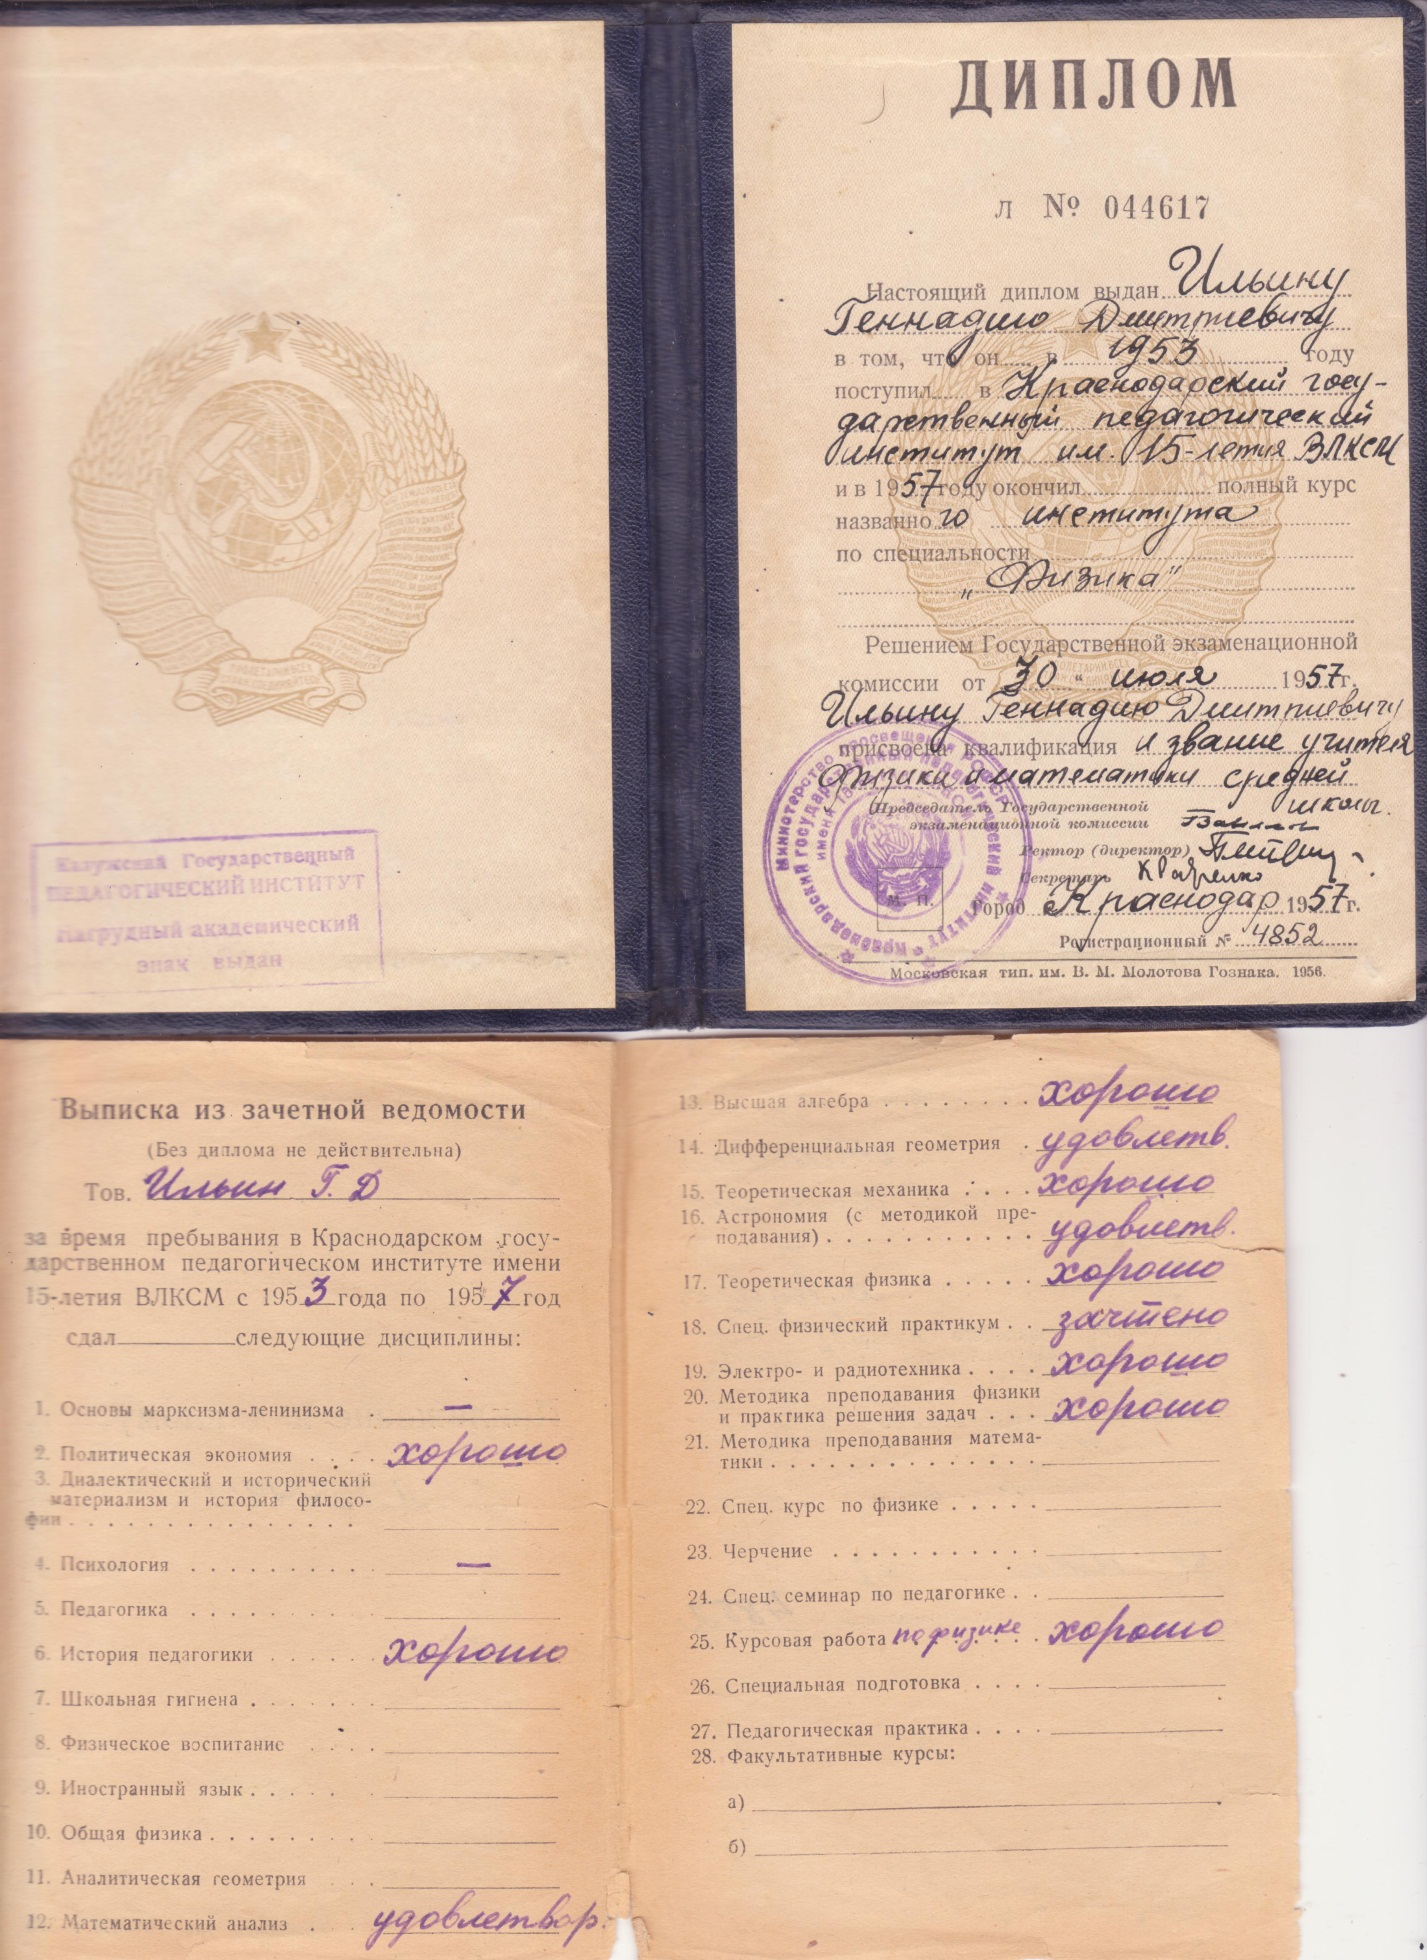 Калужский Государственный
ПЕДАГОГИЧЕСКИЙ ИНСТИТУТ
Нагрудный академический
знак выдан
ДИПЛОМ
Л № 044617
Настоящий диплом выдан Ильину
Геннадию Дмитриевичу
в том, что он в 1953 году
поступил в Краснодарский госу-
дарственный педагогический
институт им. 15-летия ВЛКСМ
и в 1957 году окончил полный курс
названного института
по специальности
„Физика"
Решением Государственной экзаменационной
комиссии от 30 " июля 1957 г.
Ильину Геннадию Дмитриевичу
присвоена квалификация и звание учителя
физики и математики средней
школы.
Председатель Государственной
экзаменационной комиссии
Ректор (директор)
Секретарь
М. П.
Город Краснодар 1957 г.
Регистрационный № 4852
Московская тип. им. В. М. Молотова Гознака. 1956.
Министерство просвещения РСФСР
Краснодарский государственный педагогический институт
имени 15
Выписка из зачетной ведомости
(Без диплома не действительна)
Тов. Ильин Г. Д
за время пребывания в Краснодарском госу-
дарственном педагогическом институте имени
15-летия ВЛКСМ с 1953 года по 1957 год
сдал следующие дисциплины:
1. Основы марксизма-ленинизма . —
2. Политическая экономия . . . . хорошо
3. Диалектический и исторический
материализм и история филосо-
фии . . . . . . . . . . . . . . .
4. Психология . . . . . . . . . . —
5. Педагогика . . . . . . . . . .
6. История педагогики . . . . . . хорошо
7. Школьная гигиена . . . . . . .
8. Физическое воспитание . . . .
9. Иностранный язык . . . . . . .
10. Общая физика . . . . . . . . .
11. Аналитическая геометрия . . .
12. Математический анализ . . . удовлетвор.
13. Высшая алгебра . . . . . . . . хорошо
14. Дифференциальная геометрия . удовлетв.
15. Теоретическая механика . . . . хорошо
16. Астрономия (с методикой пре-
подавания) . . . . . . . . . . . удовлетв.
17. Теоретическая физика . . . . . хорошо
18. Спец. физический практикум . . зачтено
19. Электро- и радиотехника . . . . хорошо
20. Методика преподавания физики
и практика решения задач . . . хорошо
21. Методика преподавания матема-
тики . . . . . . . . . . . . . .
22. Спец. курс по физике . . . . .
23. Черчение . . . . . . . . . . .
24. Спец. семинар по педагогике . .
25. Курсовая работа по физике . . хорошо
26. Специальная подготовка . . . .
27. Педагогическая практика . . . .
28. Факультативные курсы:
а)
б)